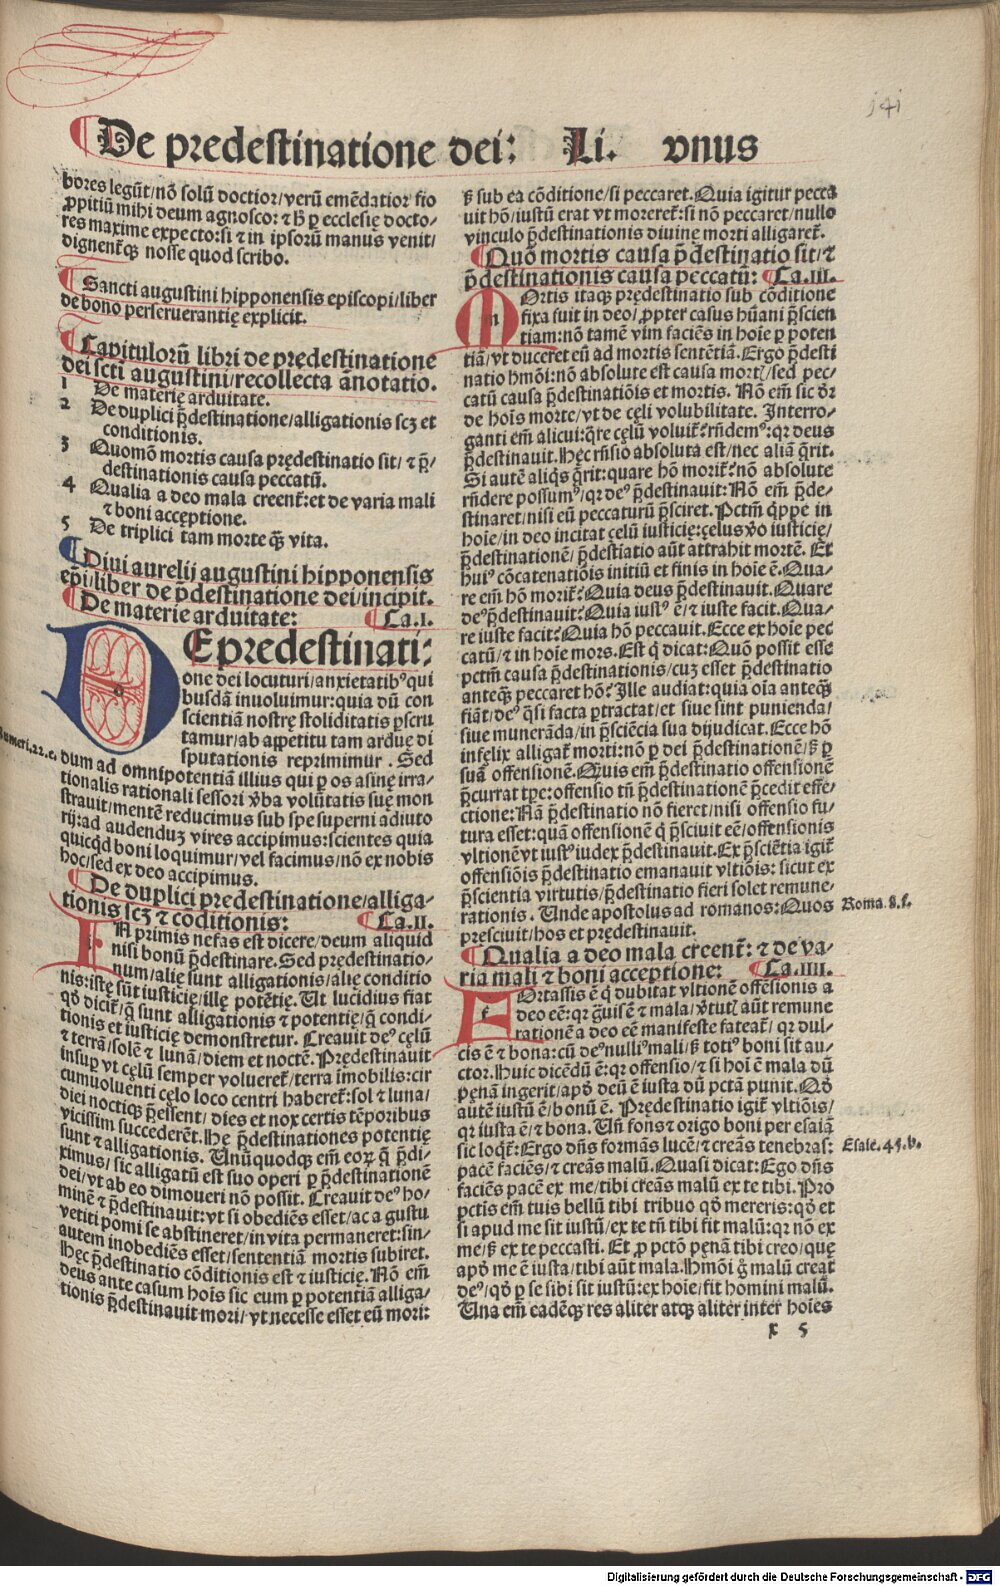 141
De predestinatione dei: Li. vnus
bores legūt/nō solū doctior/verū emēdatior fio
ꝓpitiū mihi deum agnoscor: ⁊ ꝑ ecclesię docto-
res maxime expecto: si ⁊ in ipsorū manus venit/
dignent̄ꝗ nosse quod scribo.
¶ Sancti augustini hipponensis episcopi/liber
de bono perseruerantię explicit.
¶ Capitulorū libri de predestinatione
dei scti augustini/recollecta ānotatio.
1 De materię arduitate.
2 De duplici p̄destinatione/alligationis scꝫ et
conditionis.
3 Quomō mortis causa prędestinatio sit/⁊ p̄-
destinationis causa peccatū.
4 Qualia a deo mala creent̄: et de varia mali
⁊ boni accęptione.
5 De triplici tam morte ꝗ̃ vita.
¶ Diui aurelij augustini hipponensis
epi/liber de p̄destinatione dei/incipit.
¶ De materie arduitate: ¶ Ca.I.
DE predestinati:
one dei locuturi/anxietatibꝰ qui
busdā inuoluimur: quia dū con
scientiā nostrę stoliditatis ꝑscru
tamur/ab appetitu tam arduę di
sputationis reprimimur. Sed
Numeri.22.e. dum ad omnipotentiā illius qui ꝑ os asinę irra-
tionalis rationali sessori v̄ba volūtatis suę mon
strauit/mentē reducimus sub spe superni adiuto
rij: ad audenduꝫ vires accipimus: scientes quia
quicꝗd boni loquimur/vel facimus/nō ex nobis
hoc/sed ex deo accipimus.
¶ De duplici predestinatione/alliga-
tionis scꝫ ⁊ cōditionis: ¶ Ca.II.
IN primis nefas est dicere/deum aliquid
nisi bonū p̄destinare. Sed prędestinatio-
num/alię sunt alligationis/alię conditio
nis: istę sūt iusticię/illę potētię. Ut lucidius fiat
qd̄ dicit̄/q̄ sunt alligationis ⁊ potentię/q̄ condi-
tionis et iusticię demonstretur. Creauit deꝰ cęlū
⁊ terrā/solē ⁊ lunā/diem et noctē. Prędestinauit
insuꝑ vt cęlū semper volueret̄/terra imobilis: cir
cumuoluenti cęlo loco centri haberet̄: sol ⁊ luna/
diei noctiꝗ p̄essent/dies et nox certis tēporibus
vicissim succederēt. Hę p̄destinationes potentię
sunt ⁊ alligationis. Unūquodꝗ em̄ eoꝝ q̄ p̄di-
ximus/sic alligatū est suo operi ꝑ p̄destinationē
dei/vt ab eo dimoueri nō possit. Creauit deꝰ ho-
minē ⁊ p̄destinauit: vt si obediēs esset/ac a gustu
vetiti pomi se abstineret/in vita permaneret: sin-
autem inobediēs esset/sententiā mortis subiret.
Hęc p̄destinatio cōditionis est ⁊ iusticię. Nō em̄
deus ante casum hois̄ sic eum ꝑ potentiā alliga-
tionis p̄destinauit mori/vt necesse esset eū mori:
ꝗ sub ea cōditione/si peccaret. Quia igitur pecca
uit hō/iustū erat vt moreret̄: si nō peccaret/nullo
vinculo p̄destinationis diuine morti alligaret̄.
¶ Quō mortis causa p̄destinatio sit/⁊
p̄destinationis causa peccatū: ¶ Ca.III.
MOrtis itaqꝫ prędestinatio sub cōditione
fixa fuit in deo/ꝓpter casus hūani p̄scien
tiam: nō tamē vim faciēs in hoie ꝑ poten
tiā/vt duceret eū ad mortis sentētiā. Ergo p̄desti
natio hmōi: nō absolute est causa mort̄/sed pec-
catū causa p̄destinatiōis et mortis. Nō em̄ sic dr̄
de hoīs morte/vt de cęli volubilitate. Interro-
ganti em̄ alicui: q̄re cęlū voluit̄? rn̄demꝰ: qꝛ deus
p̄destinauit. Hęc rn̄sio absoluta est/nec aliā q̄rit.
Si autē aliqs q̄rit: quare hō morit̄? nō absolute
rn̄dere possumꝰ/qꝛ deꝰ p̄destinauit: Nō em̄ p̄de-
stinaret/nisi eū peccaturū p̄sciret. Pctm̄ q̄ppe in
hoie/in deo incitat cęlū iusticię: cęlus v̄o iusticię/
p̄destinationē/p̄destiatio aūt attrahit mortē. Et
huiꝰ cōcatenatiōis initiū et finis in hoie ē. Qua-
re em̄ hō morit̄? Quia deus p̄destinauit. Quare
deꝰ p̄destinauit? Quia iustꝰ ē/⁊ iuste facit. Qua-
re iuste facit? Quia hō peccauit. Ecce ex hoie pec
catū/⁊ in hoie mors. Est q̄ dicat: Quō possit esse
pctm̄ causa p̄destinationis/cuꝫ esset p̄destinatio
anteꝗ̃ peccaret hō? Ille audiat: quia oīa anteꝗ̃
fiāt/deꝰ q̄si facta ꝑtractat/et siue sint punienda/
siue munerāda/in p̄sciēcia sua dijudicat. Ecce hō
infelix alligat̄ morti: nō ꝑ dei p̄destinationē/ꝗ ꝑ
suā offensionē. Quis em̄ p̄destinatio offensionē
p̄currat tꝑe: offensio tn̄ p̄destinationē p̄cedit effe-
ctione: Nā p̄destinatio nō fieret/nisi offensio fu-
tura esset: quā offensionē q̄ p̄sciuit eē/offensionis
vltionē vt iustꝰ iudex p̄destinauit. Ex p̄sciētia igit̄
offensiōis p̄destinatio emanauit vltiōis: sicut ex
p̄scientia virtutis/p̄destinatio fieri solet remune-
rationis. Unde apostolus ad romanos: Quos Roma.8.f.
presciuit/hos et prędestinauit.
¶ Qualia a deo mala creent̄: ⁊ de va-
ria mali ⁊ boni acceptione: ¶ Ca.IIII.
FOrtassis ē q̄ dubitat vltionē offēsionis a
deo eē: qꝛ ḡuis ē ⁊ mala/v̄tut̄ aūt remune
rationē a deo eē manifeste fateat̄/qꝛ dul-
cis ē ⁊ bona: cū deꝰ nulliꝰ mali/ꝗ totiꝰ boni sit au-
ctor. Huic dicēdū ē: qꝛ offensio/⁊ si hoī ē mala dū
pęnā ingerit/apd̄ deū ē iusta dū pctā punit. Qd̄
autē iustū ē/bonū ē. Prędestinatio igit̄ vltiōis/
qꝛ iusta ē/⁊ bona. Un̄ fons ⁊ origo boni per esaiā
sic loqt̄: Ergo dn̄s formās lucē/⁊ creās tenebras: Esaie.45.b.
pacē faciēs/⁊ creās malū. Quasi dicat: Ego dn̄s
faciēs pacē ex me/tibi creās malū ex te tibi. Pro
pctis em̄ tuis bellū tibi tribuo qd̄ mereris: qd̄ et
si apud me sit iustū/ex te tn̄ tibi fit malū: qꝛ nō ex
me/ꝗ ex te peccasti. Et ꝓ pctō pęnā tibi creo/quę
apd̄ me ē iusta/tibi aūt mala. Hmōi g̊ malū creat
deꝰ/qd̄ ꝑ se sibi sit iustū: ex hoie/fit homini malū.
Una em̄ eadēꝗ res aliter atꝗ aliter inter hoies
x 5
Digitalisierung gefördert durch die Deutsche Forschungsgemeinschaft - DFG